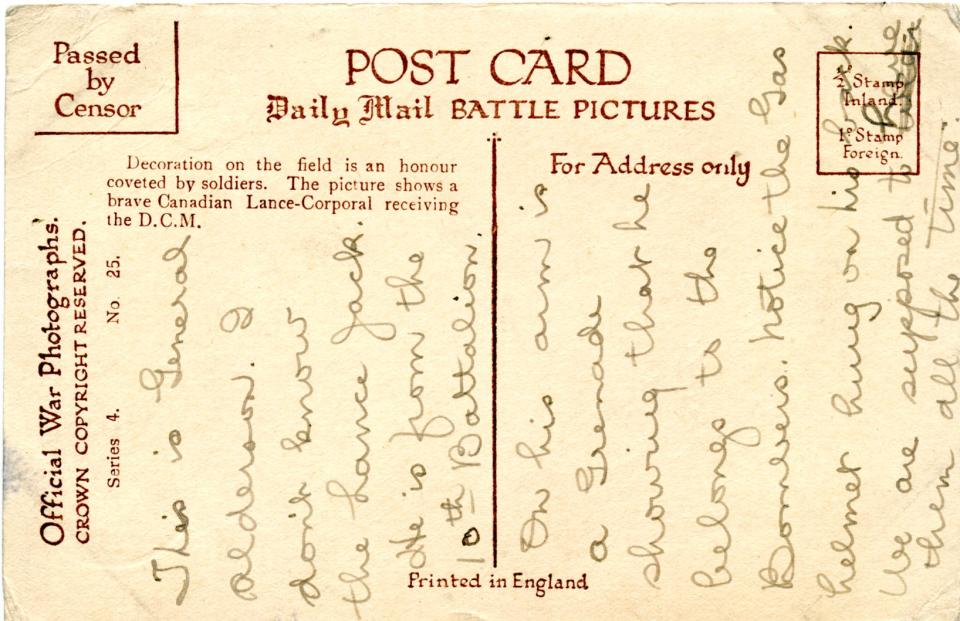 Passed
by
Censor
POST CARD
Daily Mail BATTLE PICTURES
½d Stamp
Inland.
1d Stamp
Foreign.
Decoration on the field is an honour
coveted by soldiers. The picture shows a
brave Canadian Lance-Corporal receiving
the D.C.M.
For Address only
Official War Photographs.
CROWN COPYRIGHT RESERVED.
Series 4. No. 25.
This is General
Alderson. I
don't know
the lance jack.
He is from the
10th Battalion.
On his arm is
a Grenade
showing that he
belongs to the
Bombers. Notice the Gas
helmet hung on his back.
We are supposed to have
them all the time.
Printed in England